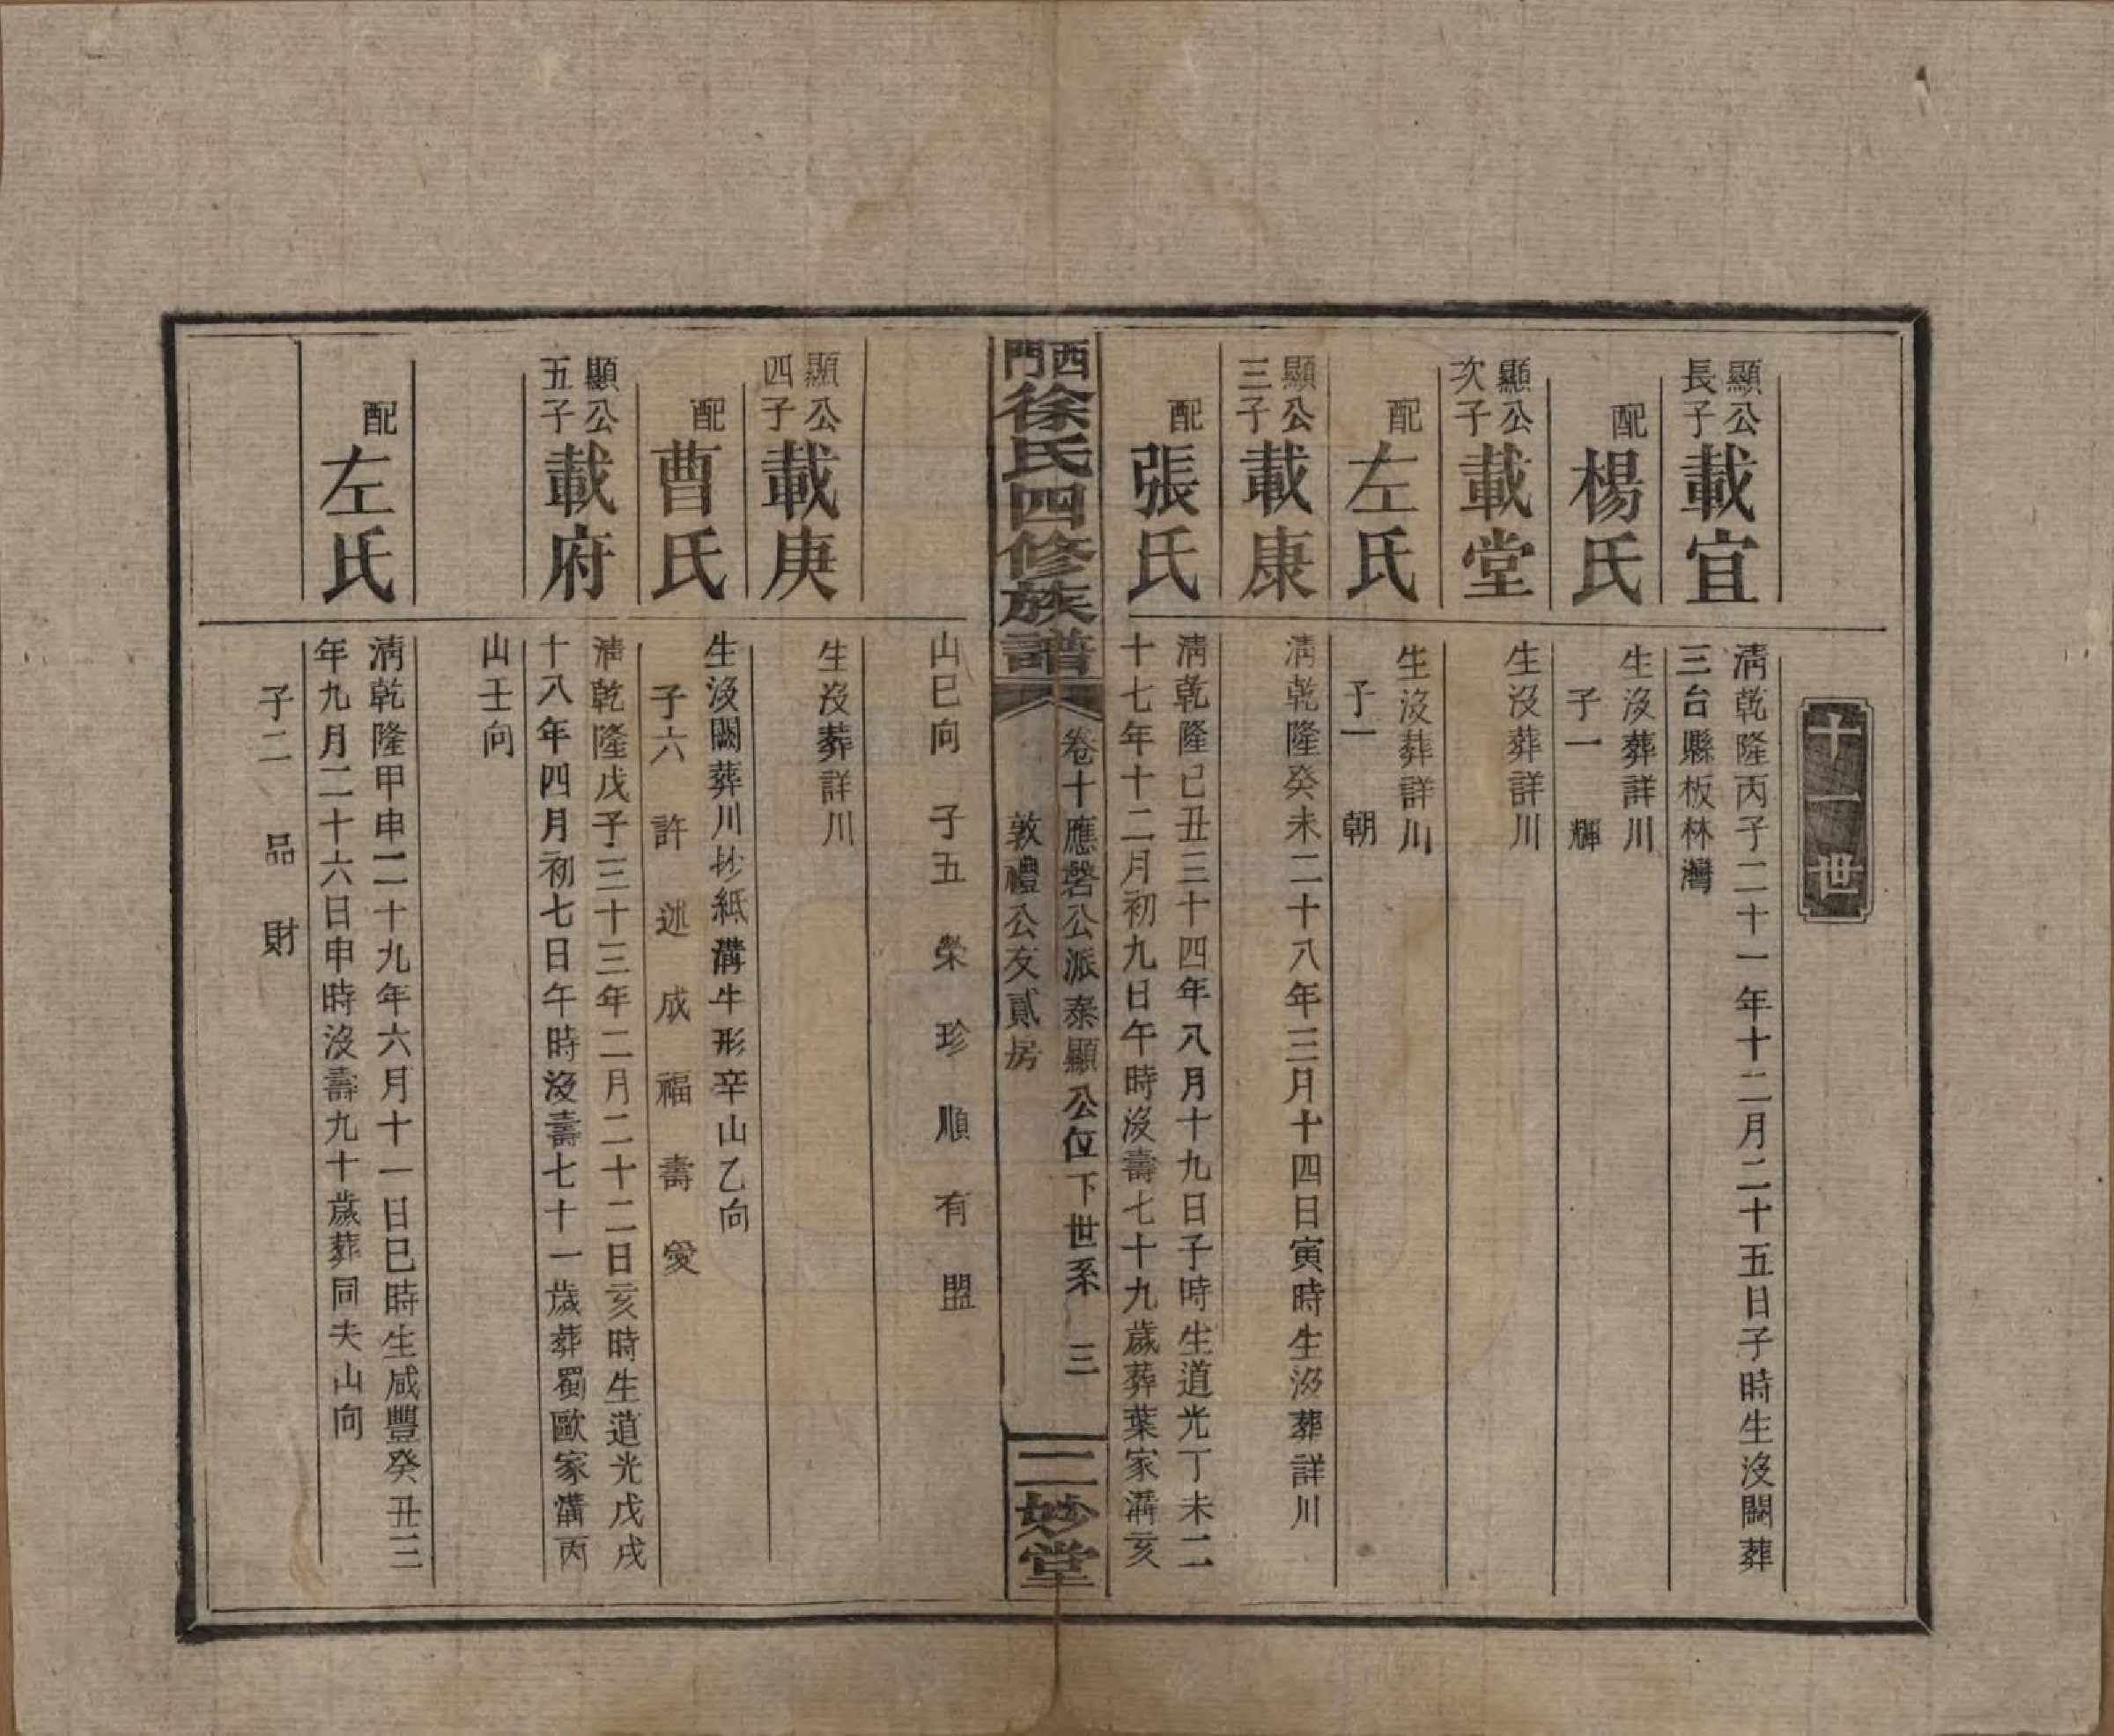 十一世
顯公
長子
載宜
清乾隆丙子二十一年十二月二十五日子時生沒闕葬
三台縣板林灣
配
楊氏
生沒葬詳川
子一 輝
顯公
次子
載堂
生沒葬詳川
配
左氏
生沒葬詳川
子一 朝
顯公
三子
載康
清乾隆癸未二十八年三月十四日寅時生沒葬詳川
配
張氏
清乾隆己丑三十四年八月十九日子時生道光丁未二
十七年十二月初九日午時沒壽七十九歲葬葉家溝亥
西門徐氏四修族譜
卷十應磬公派泰顯公位下世系 三
敦禮公友貳房
二妙堂
山巳向 子五 榮 珍 順 有 盟
顯公
四子
載庚
生沒葬詳川
配
曹氏
生沒闕葬川抄紙溝牛形辛山乙向
子六 許 述 成 福 壽 愛
顯公
五子
載府
清乾隆戊子三十三年二月二十二日亥時生道光戊戌
十八年四月初七日午時沒壽七十一歲葬蜀歐家溝丙
山壬向
配
左氏
清乾隆甲申二十九年六月十一日巳時生咸豐癸丑三
年九月二十六日申時沒壽九十歲葬同夫山向
子二 品 財